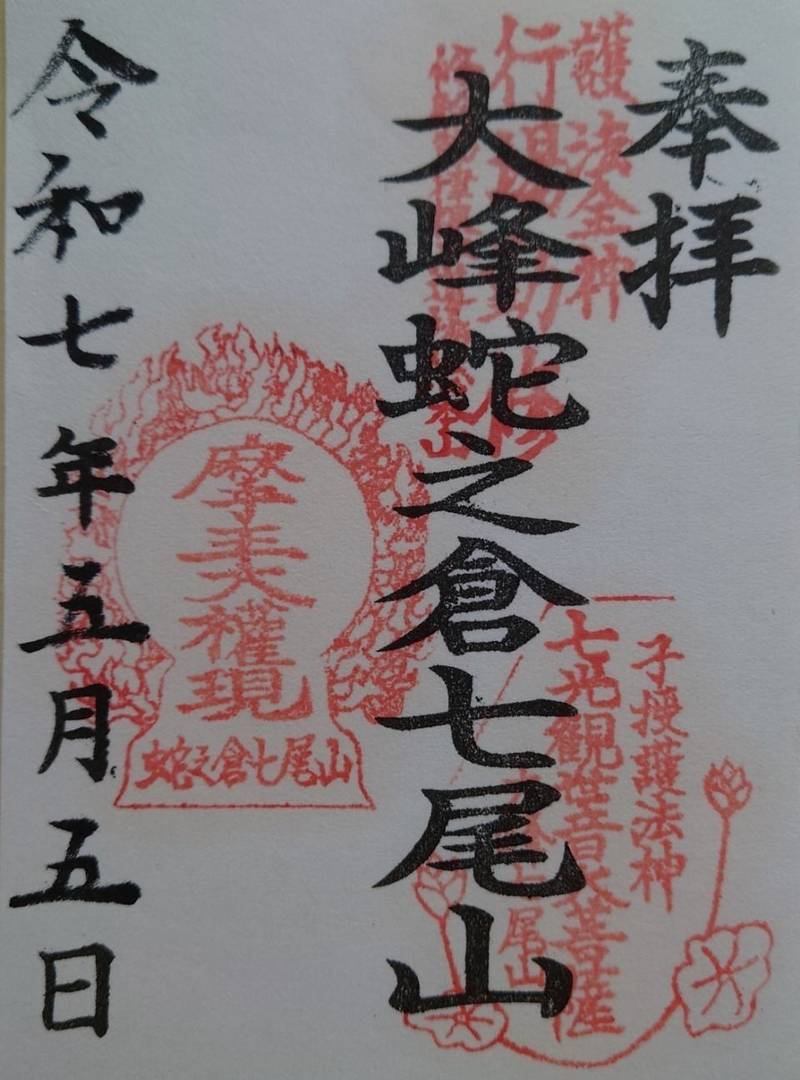 奉拝
大峰蛇之倉七尾山
令和七年五月五日
護法全神
行場
子授護法神
七光観世音大菩薩
尾山
摩王大權現
蛇之倉七尾山